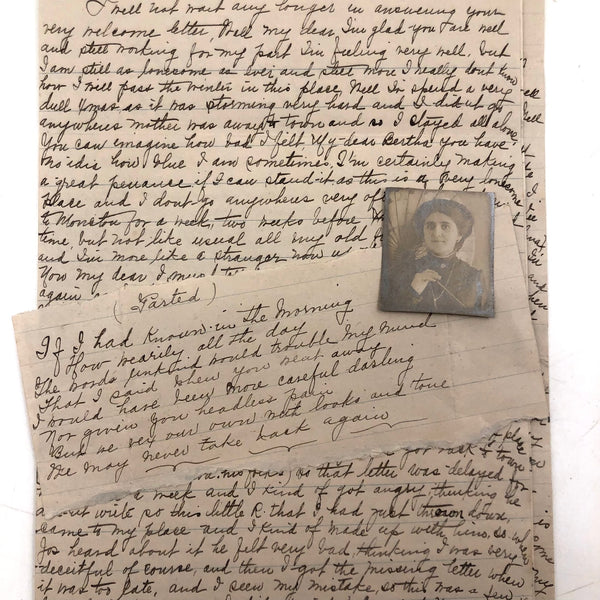 I will not wait any longer in answering your
very welcome letter, Well my dear, I'm glad you are well
and still working for my part I'm feeling very well, but
I am still as lonesome as ever, and still more I really dont know
how I will pass the winter in this place, Well I'v spend a very
dull Xmas as it was storming very hard and I did'nt go
anywheres mother was away to town and so I stayed all alone,
You can imagine how bad I felt. My dear Bertha you have
no idia how blue I am sometimes, I'm certainly making
a great penance if I can stand it as this is a very lonesome
place and I dont go anywheres very
to Moncton for a week, two weeks before
time, but not like usual all my old
and I'm more like a stranger now
Now my dear I must
again
(Parted)
If I had known in the Morning
How wearily all the day
The words unkind would trouble my mind
That I said when you went away
I would have been more careful darling
Nor given you needless pain
But we vex our own with looks and tone
We may never take back again
so that letter was delayed for
a week and I kind of got angry, thinking he
write so this little R. that I had just thrown down,
came to my place and I kind of made up with him, so when
Jos heard about it he felt very bad, thinking I was very
deceitful of course, and then I got the missing letter when
it was too late, and I seen my mistake, so this was a